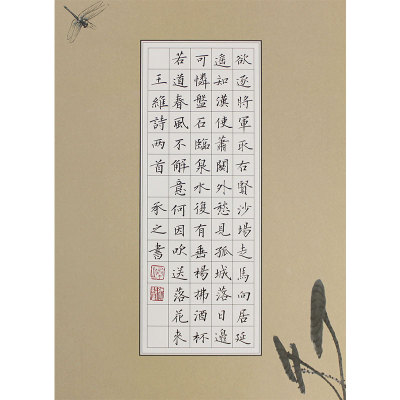 欲逐將軍取右賢沙場走馬向居延
遙知漢使蕭關外愁見孤城落日邊
可憐盤石臨泉水復有垂楊拂酒杯
若道春風不解意何因吹送落花來
王維詩兩首 承之書